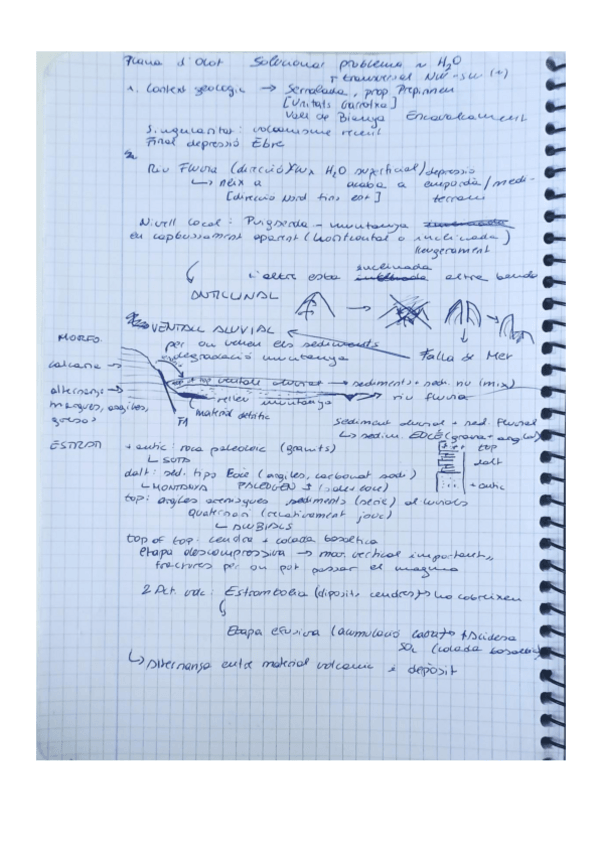 Plana d'Olot Solucionar problema ~ H2O
↑ transversal NW-SW (+)
1. Context geològic → Serralada, prop. Prepirineu
[Unitats Garrotxa]
Vall de Bianya Encavalcament
Singularitat: volcanisme recent
Final depressió Ebre
2.
Riu Fluvià (direcció H2O superficial/depressió
↳ neix a acaba a empordà/medi-
[direcció Nord fins est] terrani
Nivell local: Puigserda - muntanya
eu capbussament aparent (horitzontal o inclinada)
lleugerament
l'altre esta inclinada altre banda
ANTICLINAL
VENTALL ALUVIAL
MORFO per on venen els sediments
degradació muntanya Falla de Mer
calcaria → ventall aluvial → sediments + sedi. riu (mix)
alternança → relleu muntanya → riu fluvia
margues, argiles, material detritic
guixos Fa Sediment aluvial + sed. Fluvial
↳ sedim. EOCÈ (grava + argiles)
ESTRATI + antic: roca paleozoic (granits) top
↳ SOTA dalt
dalt: sed. tips Eocè (argiles, carbonat sodi) + antic
↳ MONTANYA PALEOGEN
top: argiles sediments (serie) al.luvials
Quaternari (relativament jove)
↳ ALUVIALS
top of top: cendra + colada basaltica
etapa descompressiva → mov. vertical important,
fractures per on pot passar el magma
2 Act. volc: Estrombolià (diposits cendres) ho cobreixen
Etapa efusiva (acumulació
(colada basaltica)
↳ Alternança entre material volcanic i dipòsit